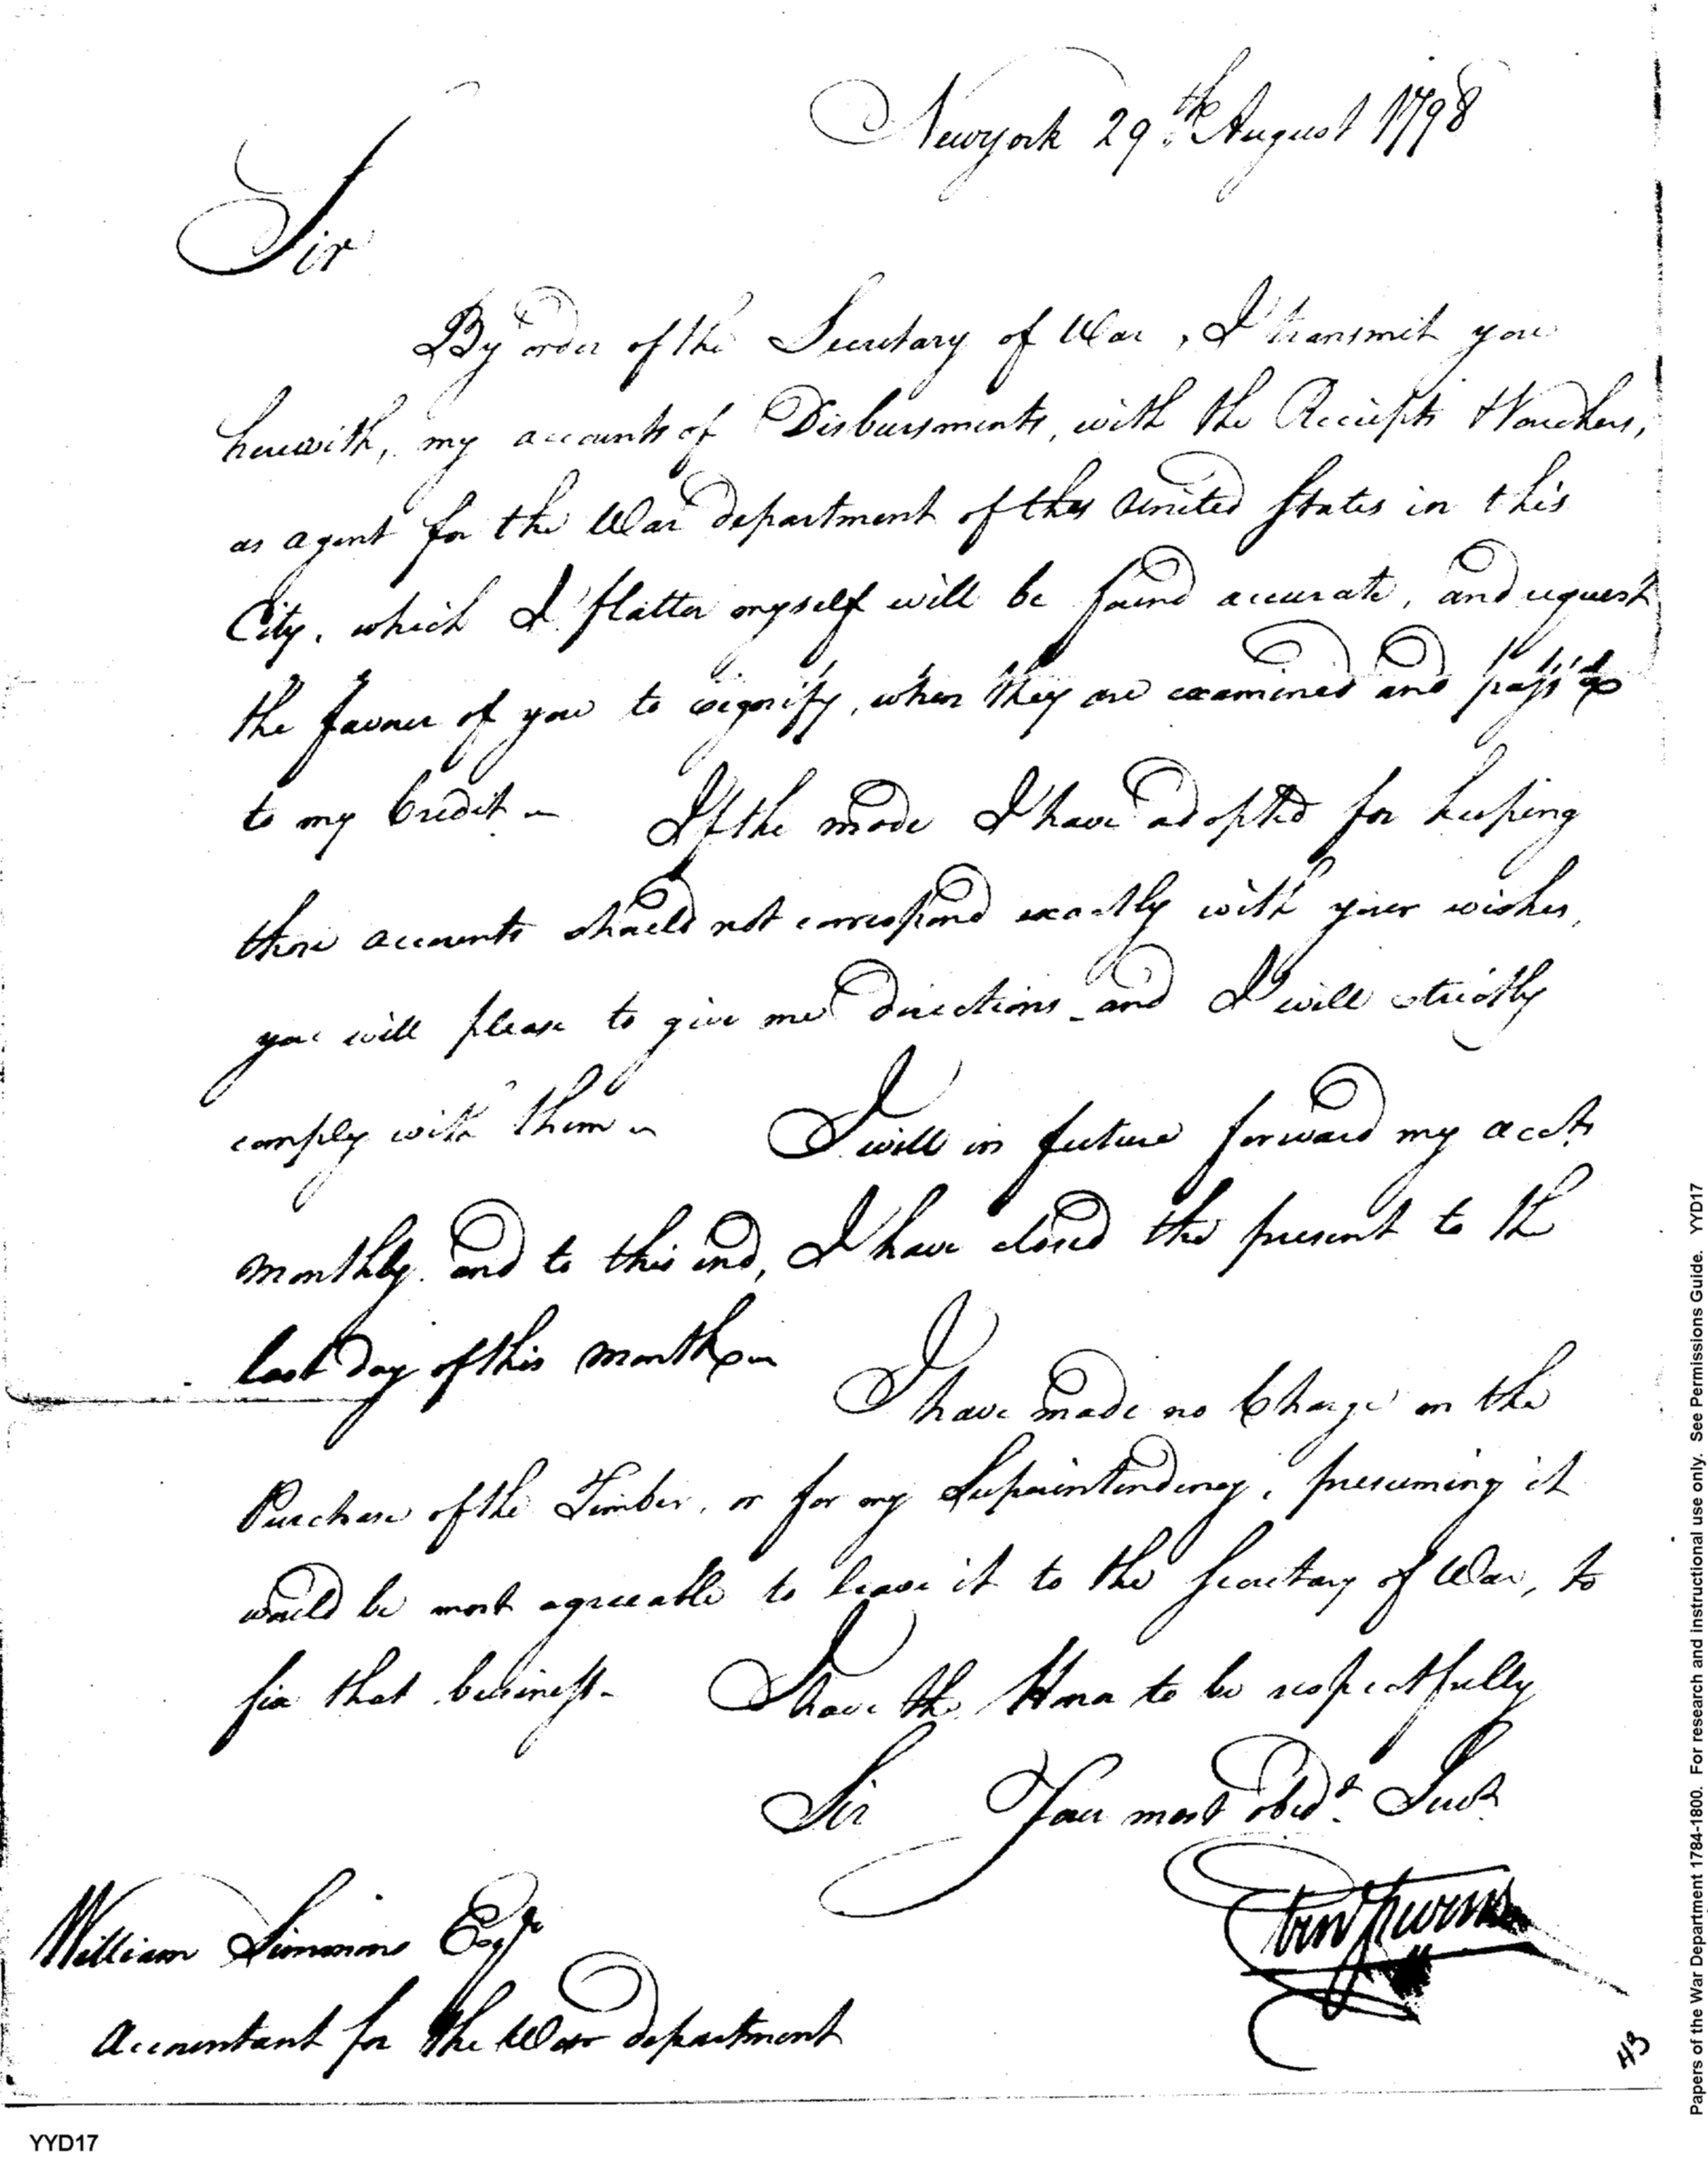 Newyork 29th August 1798
Sir
By order of the Secretary of War, I transmit you
herewith, my accounts of Disbursments, with the Receipts & Vouchers,
as agent for the War department of the United States in this
City, which I flatter myself will be found accurate, and request
the favour of you to signify, when they are examined and pass'd
to my Credit - If the mode I have adopted for keeping
these accounts should not correspond exactly with your wishes,
you will please to give me directions - and I will strictly
comply with them - I will in future forward my accts
monthly. and to this end, I have closed the present to the
last day of this month -
I have made no Charge on the
Purchase of the Timber, or for my Superintendency, presuming it
would be most agreeable to leave it to the Secretary of War, to
fix that business - I have the Honor to be respectfully
Sir Your most obedt. Servt
William Simmons Esqr
Accountant for the War department
43
YYD17
Papers of the War Department 1784-1800. For research and instructional use only. See Permissions Guide. YYD17